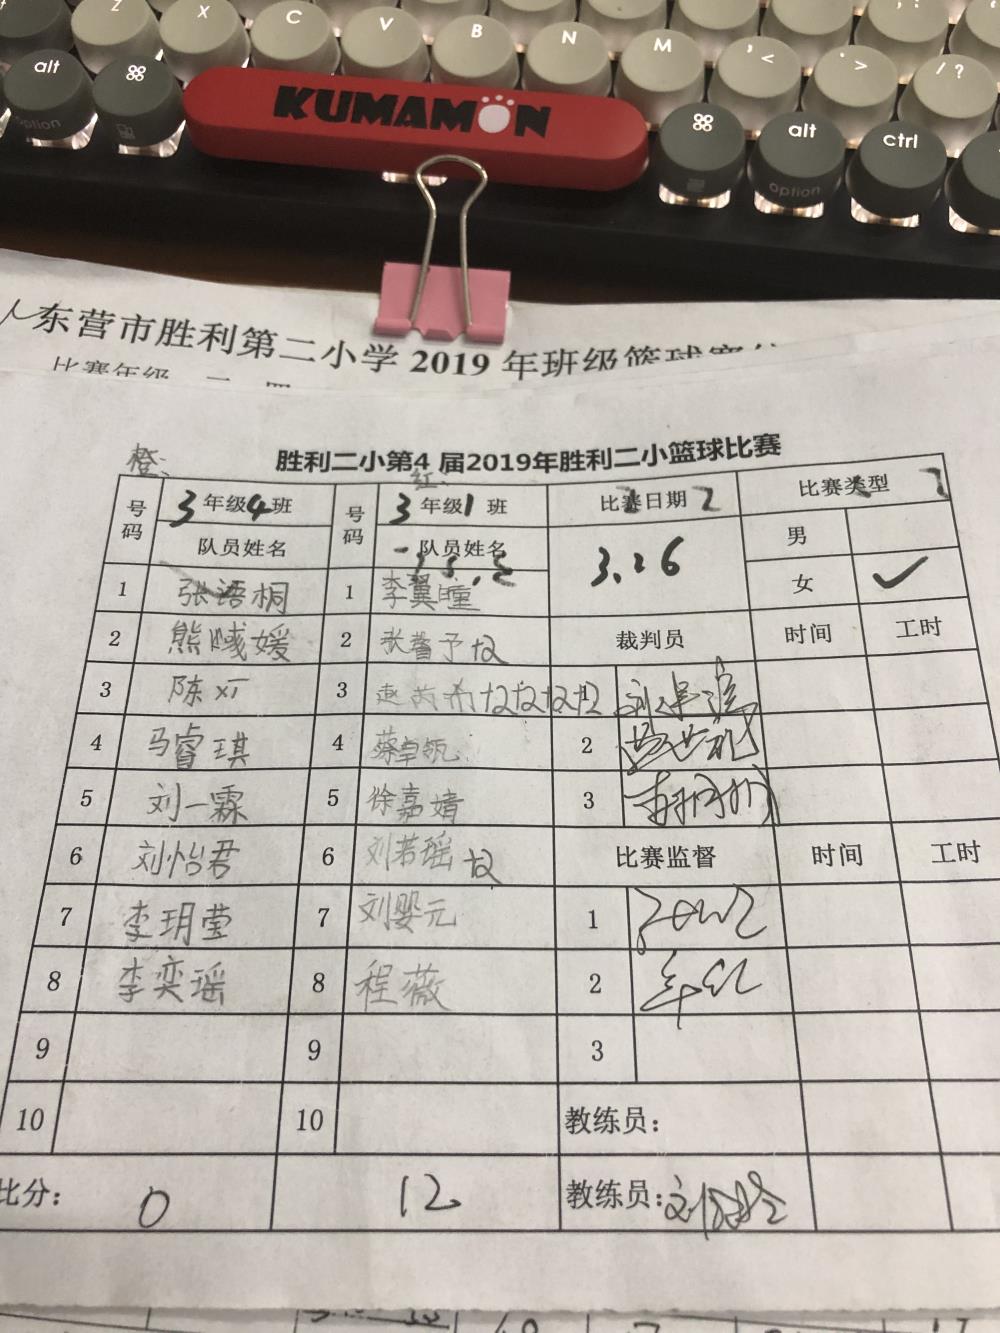 Z X C V B N M , < . > / ?
alt ⌘ KUMAMON ⌘ alt ctrl
option option
东营市胜利第二小学 2019 年班级篮球赛
比赛年级 二 四
橙 胜利二小第4 届2019年胜利二小篮球比赛
红
号码 3 年级 4 班 号码 3 年级 1 班 比赛日期 比赛类型
队员姓名 队员姓名 3.26 男
女 ✓
1 张语桐 1 李翼瞳
2 熊 媛 2 予 +2 裁判员 时间 工时
3 陈 3 赵芮 +2 +2 +2 +2 1
4 马睿琪 4 蔡卓 2
5 刘一霖 5 徐嘉婧 3
6 刘怡君 6 刘若瑶 +2 比赛监督 时间 工时
7 李玥莹 7 刘婴元 1
8 李奕瑶 8 程薇 2
9 9 3
10 10 教练员：
比分： 0 12 教练员：